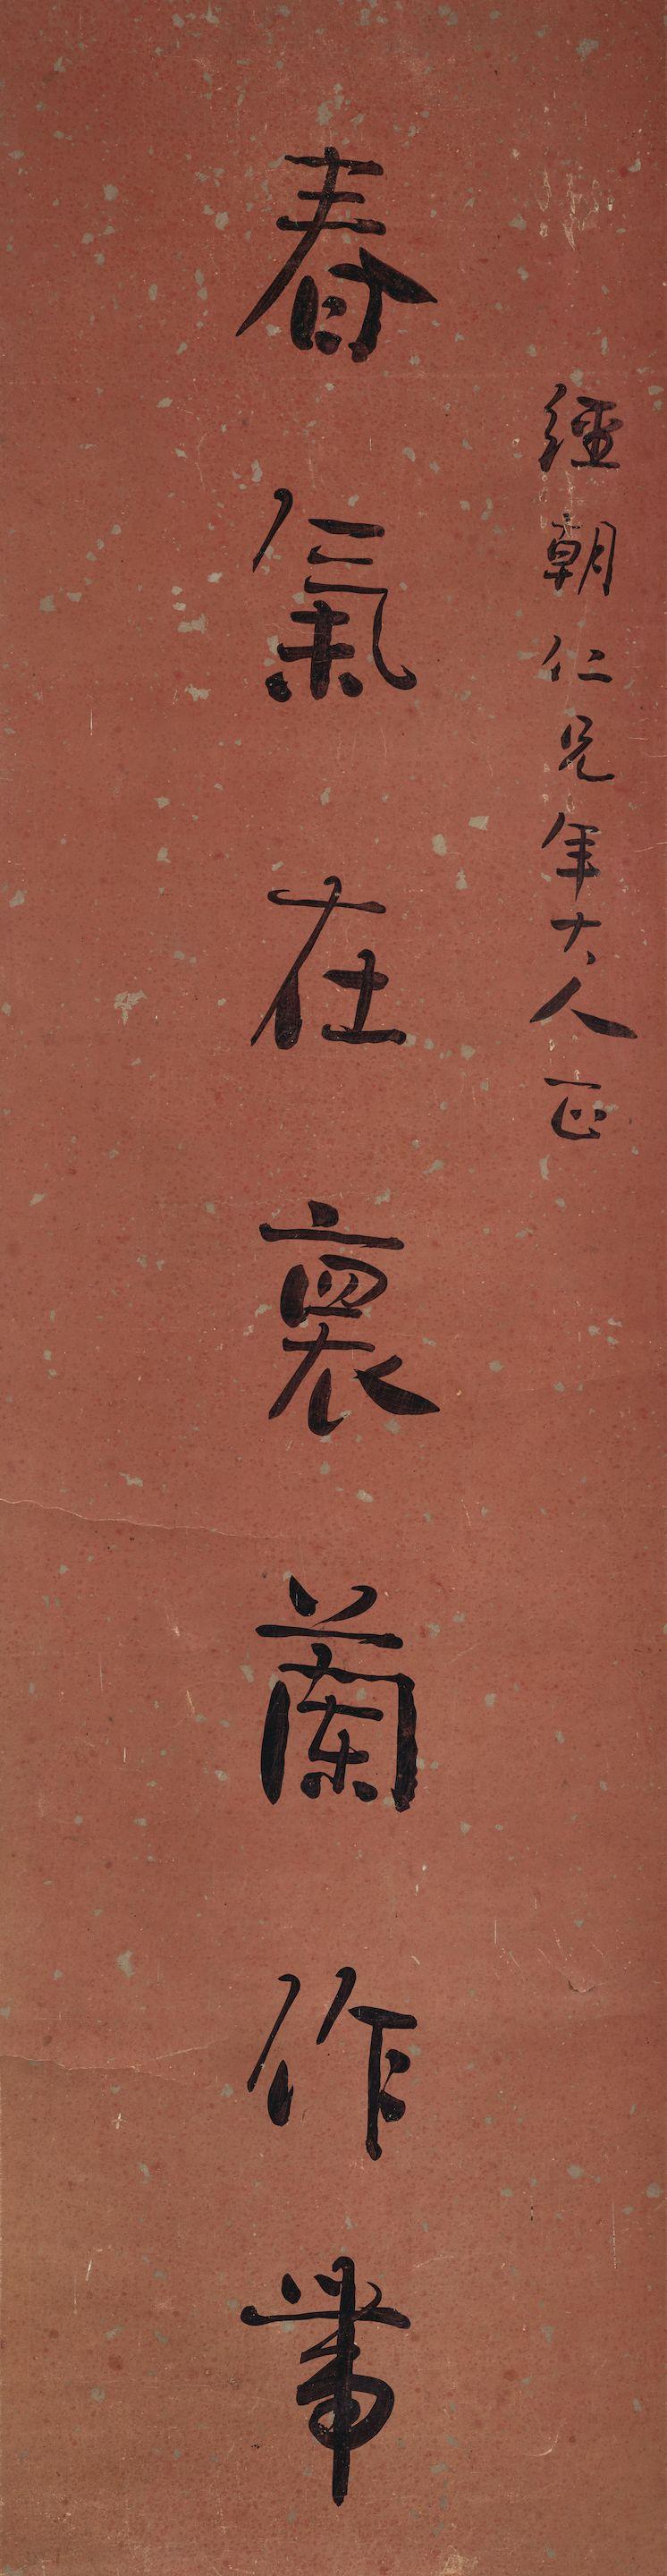 經朝仁兄年大人正
春氣在褱蘭作帶